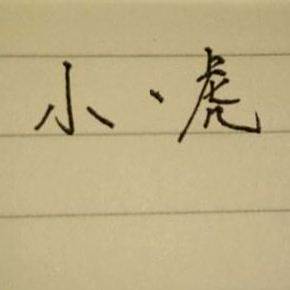 小、虎